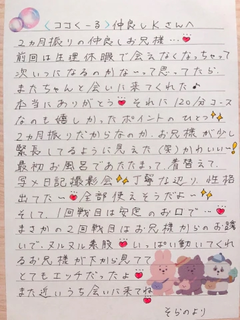 〈ココくーる〉仲良しKさんへ
2カ月振りの仲良しお兄様…
前回は生理休暇で会えなくなっちゃって
次いつになるのかな~って思ってたら、
またちゃんと会いに来てくれた♪
本当にありがとう それに120分コース
なのも嬉しかったポイントのひとつ
2カ月振りだからなのか、お兄様が少し
緊張してるように見えた(笑)かわいい~!
最初お風呂であたたまって、着替えて
写メ日記撮影会 丁寧な辺り、性格
出てた~ 全部使えそうだよ~
そして、1回戦目は安定のお口で…
まさかの2回戦目はお兄様からのお誘
いで…ヌルヌル素股 いっぱい動いてくれ
るお兄様が下から見てて
とてもエッチだったよ
また近いうち会いに来てね
そらのより